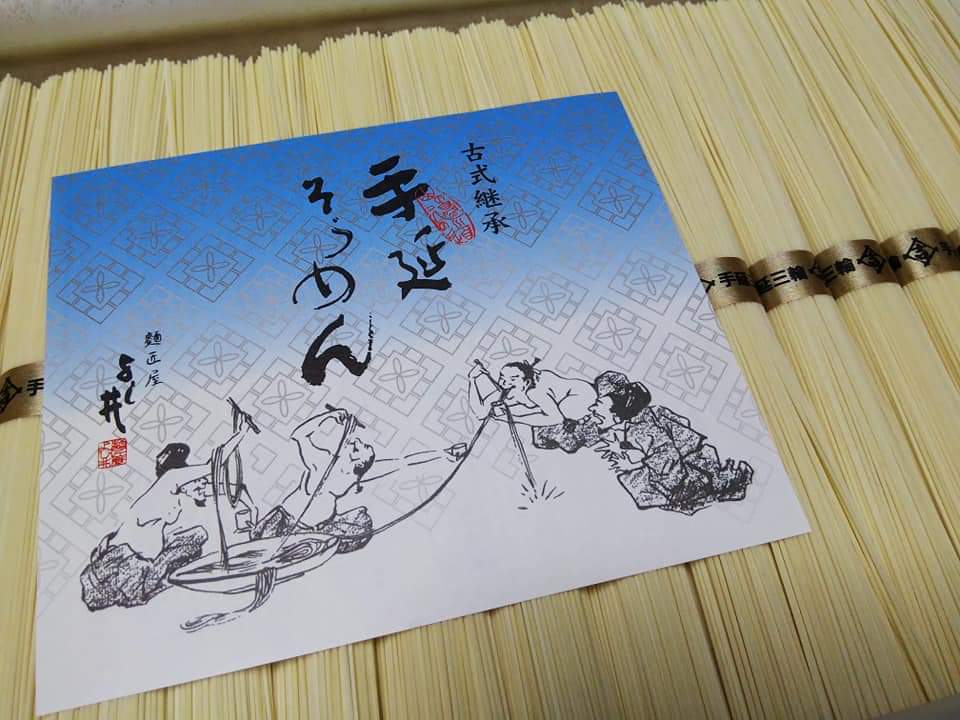 古式継承
手延
そうめん
麺匠屋
よし井
手延三輪
三輪
手